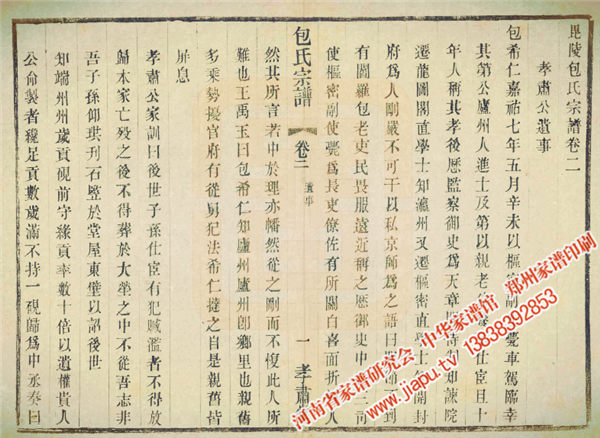 毘陵包氏宗譜卷二
孝肅公遺事
包希仁嘉祐七年五月辛未以樞副薨車駕臨幸
其第公廬州人進士及第以親老仕宦且十
年人稱其孝後歷監察御史為天章待制知諫院
遷龍圖閣直學士知瀛州又遷樞密直學士開封
府為人剛嚴不可干以私京師為之語曰到
有閻羅包老吏民畏服遠近稱之歷御史中三司
使樞密副使薨為長吏僚佐有所關白喜面折人
包氏宗譜 卷二 遺事 一 孝肅
然其所言若中於理亦幡然從之剛而不愎此人所
難也王禹玉曰包希仁知廬州廬州即鄉里也親舊
多乘勢擾官府有從舅犯法希仁撻之自是親舊皆
屏息
孝肅公家訓曰後世子孫仕宦有犯贓濫者不得放
歸本家亡歿之後不得葬於大塋之中不從吾志非
吾子孫仰珙刊石豎於堂屋東壁以詔後世
知端州州歲貢硯前守緣貢率數十倍以遺權貴人
公命製者纔足貢數歲滿不持一硯歸為中丞奏曰
河南省家谱研究会 中华家谱馆 郑州家谱印刷
www.jiapu.tv 13838392853